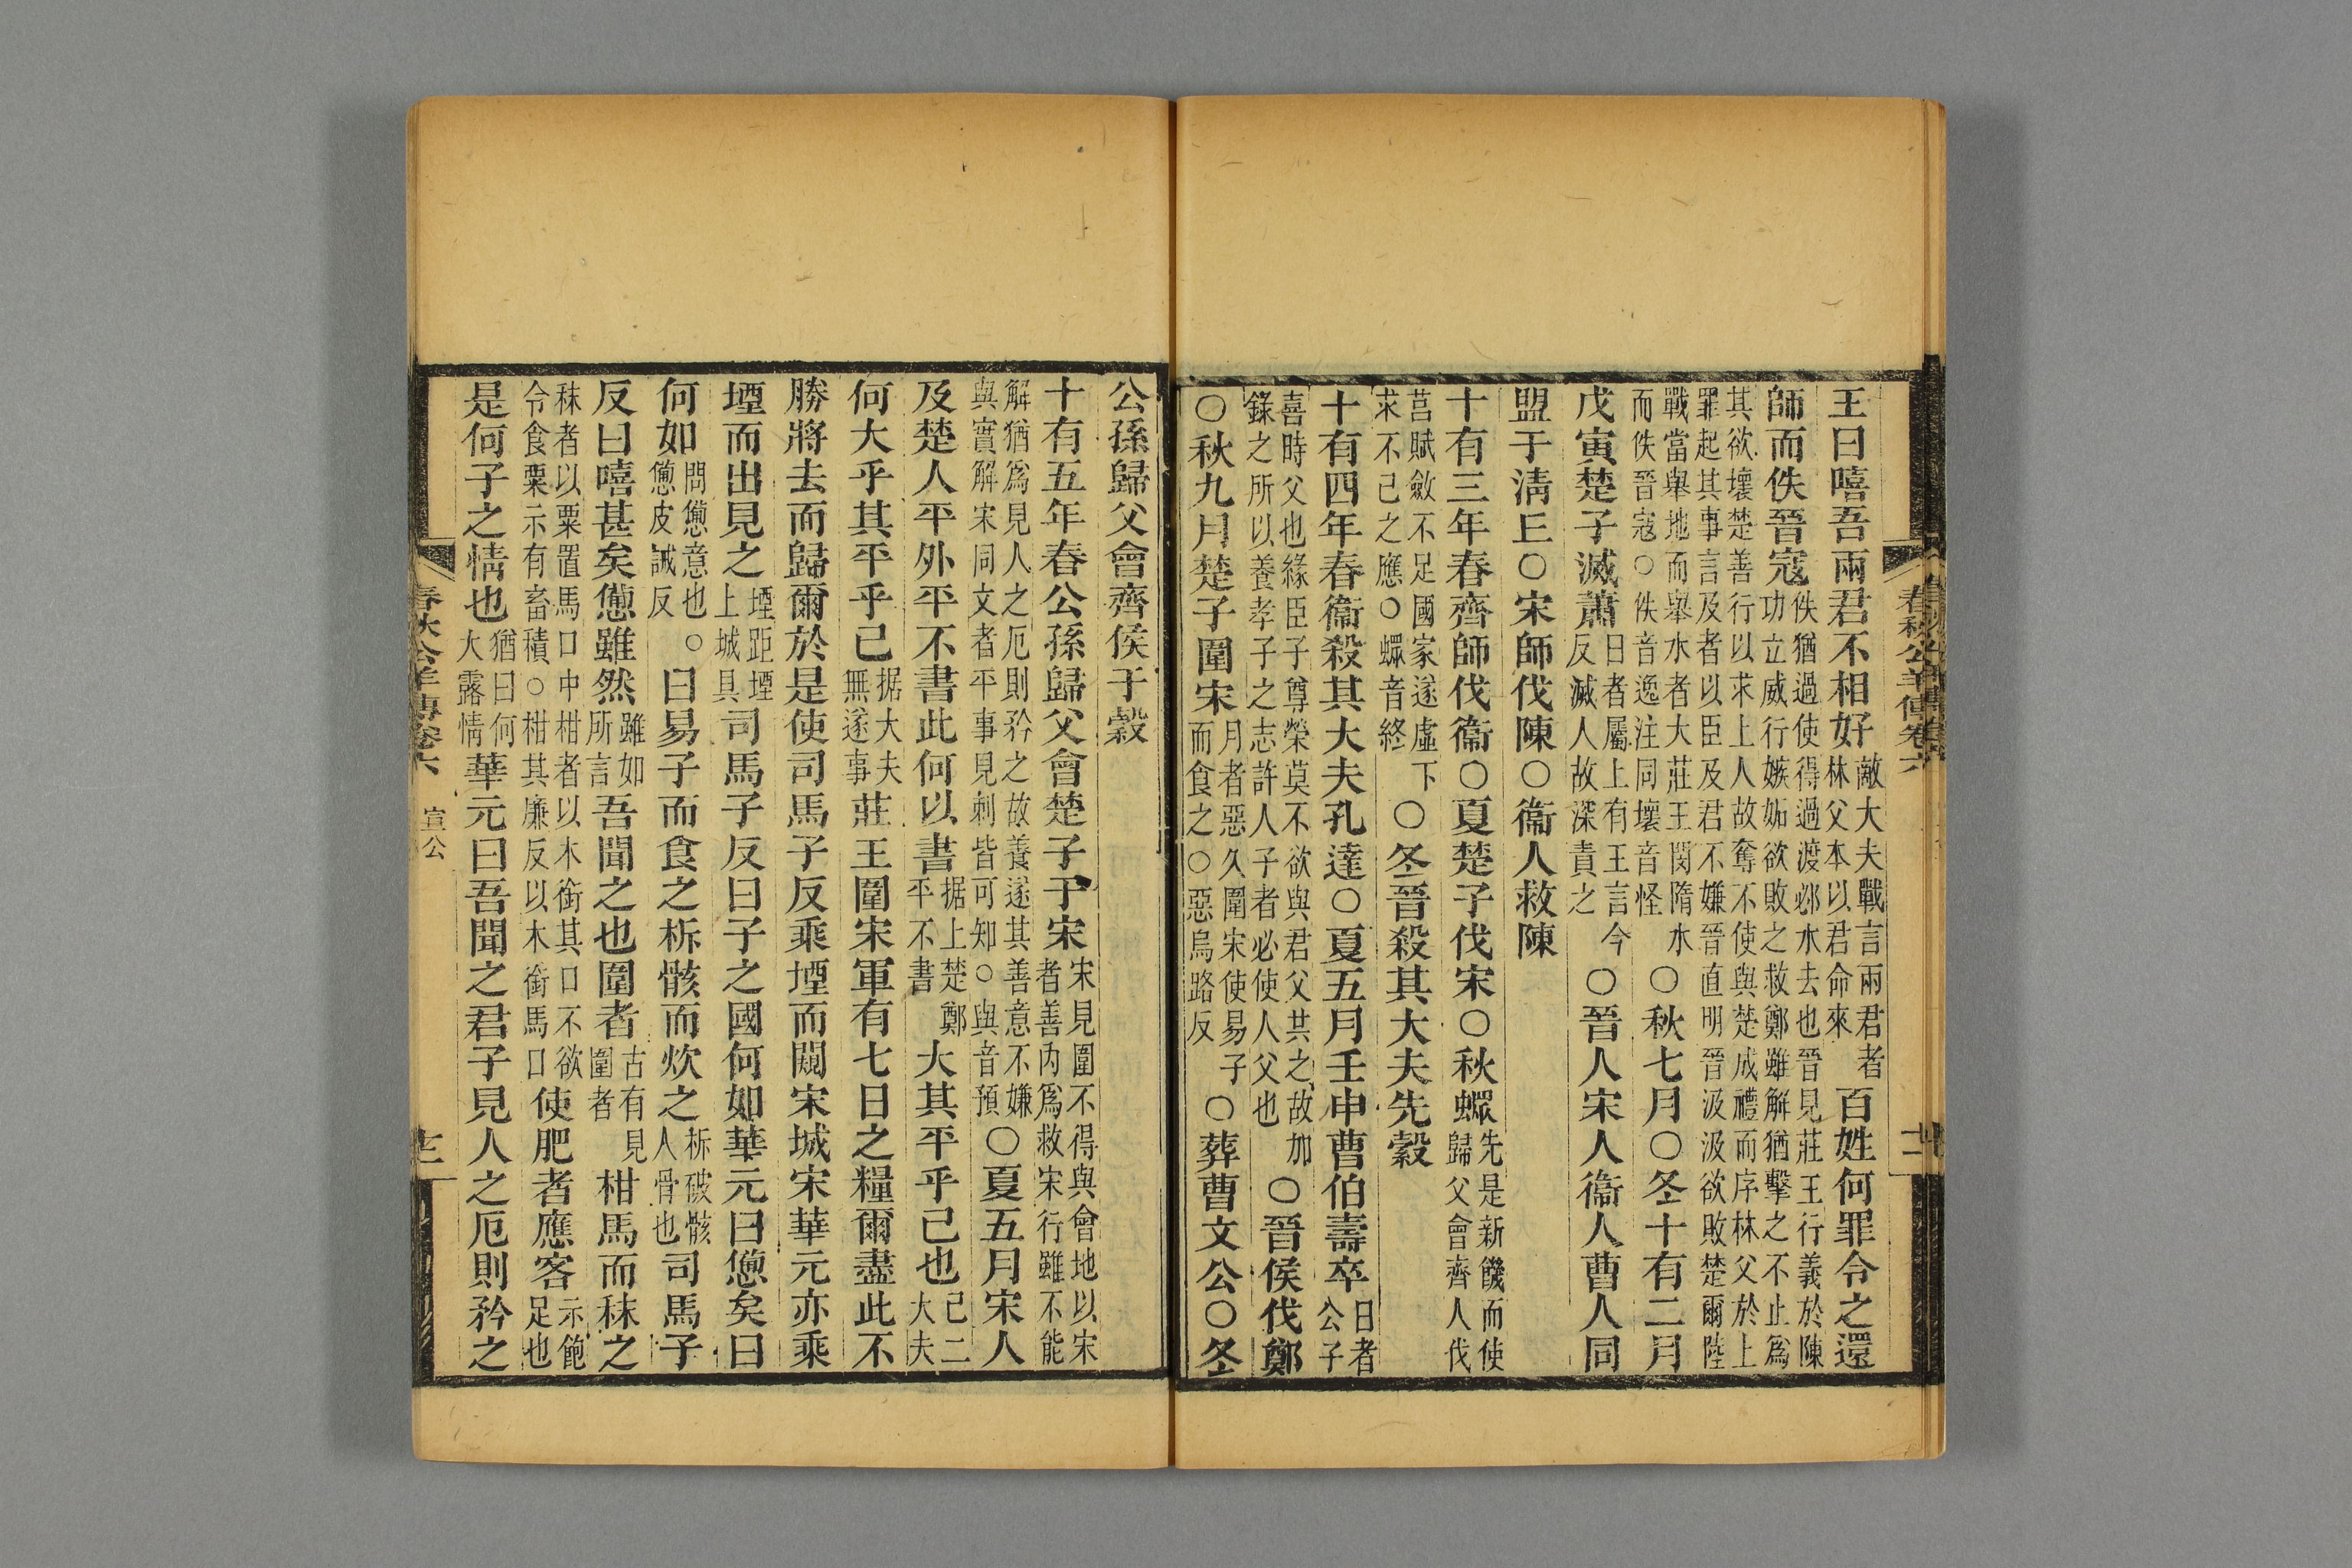 王曰嘻吾兩君不相好敵大夫戰言兩君者林父本以君命來百姓何罪令之還
師而佚晉寇佚猶過使得過渡邲水去也晉見莊王行義於陳功立威行嫉妬欲敗之救鄭雖解猶擊之不止爲
其欲壞楚善行以求上人故奪不使與楚成禮而序林父於上罪起其事言及者以臣及君不嫌晉直明晉汲汲欲敗楚爾陸
戰當舉地而舉水者大莊王閔隋水而佚晉寇○佚音逸注同壞音怪○秋七月○冬十有二月
戊寅楚子滅蕭日者屬上有王言今反滅人故深責之○晉人宋人衞人曹人同
盟于淸丘○宋師伐陳○衞人救陳
十有三年春齊師伐衞○夏楚子伐宋○秋螺先是新饑而使歸父會齊人伐
莒賦斂不足國家遂虛下求不已之應○螺音終○冬晉殺其大夫先縠
十有四年春衞殺其大夫孔達○夏五月壬申曹伯壽卒日者公子
喜時父也緣臣子尊榮莫不欲與君父其之故加錄之所以養孝子之志許人子者必使人父也○晉侯伐鄭
○秋九月楚子圍宋月者惡久圍宋使易子而食之○惡烏路反○葬曹文公○冬
公孫歸父會齊侯于穀
十有五年春公孫歸父會楚子于宋宋見圍不得與會地以宋者善內爲救宋行雖不能
解猶爲見人之厄則矜之故養遂其善意不嫌與實解宋同文者平事見刺皆可知○與音預○夏五月宋人
及楚人平外平不書此何以書据上楚鄭平不書大其平乎己也己二大夫
何大乎其平乎己据大夫無遂事莊王圍宋軍有七日之糧爾盡此不
勝將去而歸爾於是使司馬子反乘堙而闚宋城宋華元亦乘
堙而出見之堙距堙上城具司馬子反曰子之國何如華元曰憊矣曰
何如問憊意也○憊皮誡反曰易子而食之析骸而炊之析破骸人骨也司馬子
反曰嘻甚矣憊雖然雖如所言吾聞之也圍者古有見圍者柑馬而秣之
秣者以粟置馬口中柑者以木銜其口不欲令食粟示有畜積○柑其廉反以木銜馬口使肥者應客示飽足也
是何子之情也猶曰何大露情華元曰吾聞之君子見人之厄則矜之
春秋公羊傳卷六
宣公